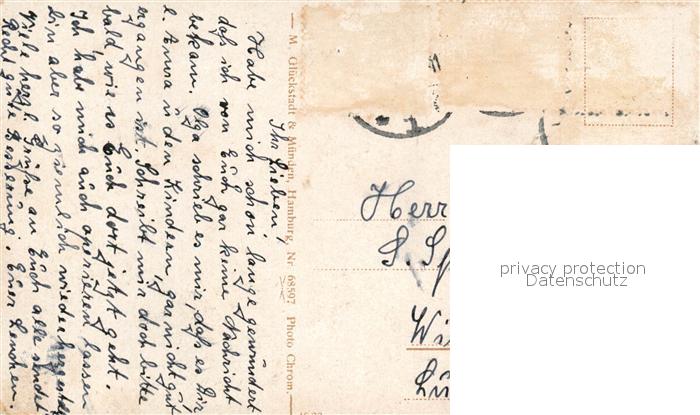 Ihr Lieben!
Habe mich schon lange gewundert
daß ich von Euch gar keine Nachricht
bekam. Olga schrieb es mir, daß es Dir
l. Anna u den Kindern, gar nicht gut
ergangen ist. Schreibt mir doch bitte
bald, wie es Euch dort jetzt geht.
Ich habe mich auch operieren lassen
bin aber so ziemlich wiederhergestellt
Viele herzl. Grüße an Euch alle sendet
Recht gute Besserung. Eure Lenchen
— M. Glückstadt & Münden, Hamburg, Nr. 68597 Photo Chrom. —
Herr
S. Sp
Wi
privacy protection
Datenschutz